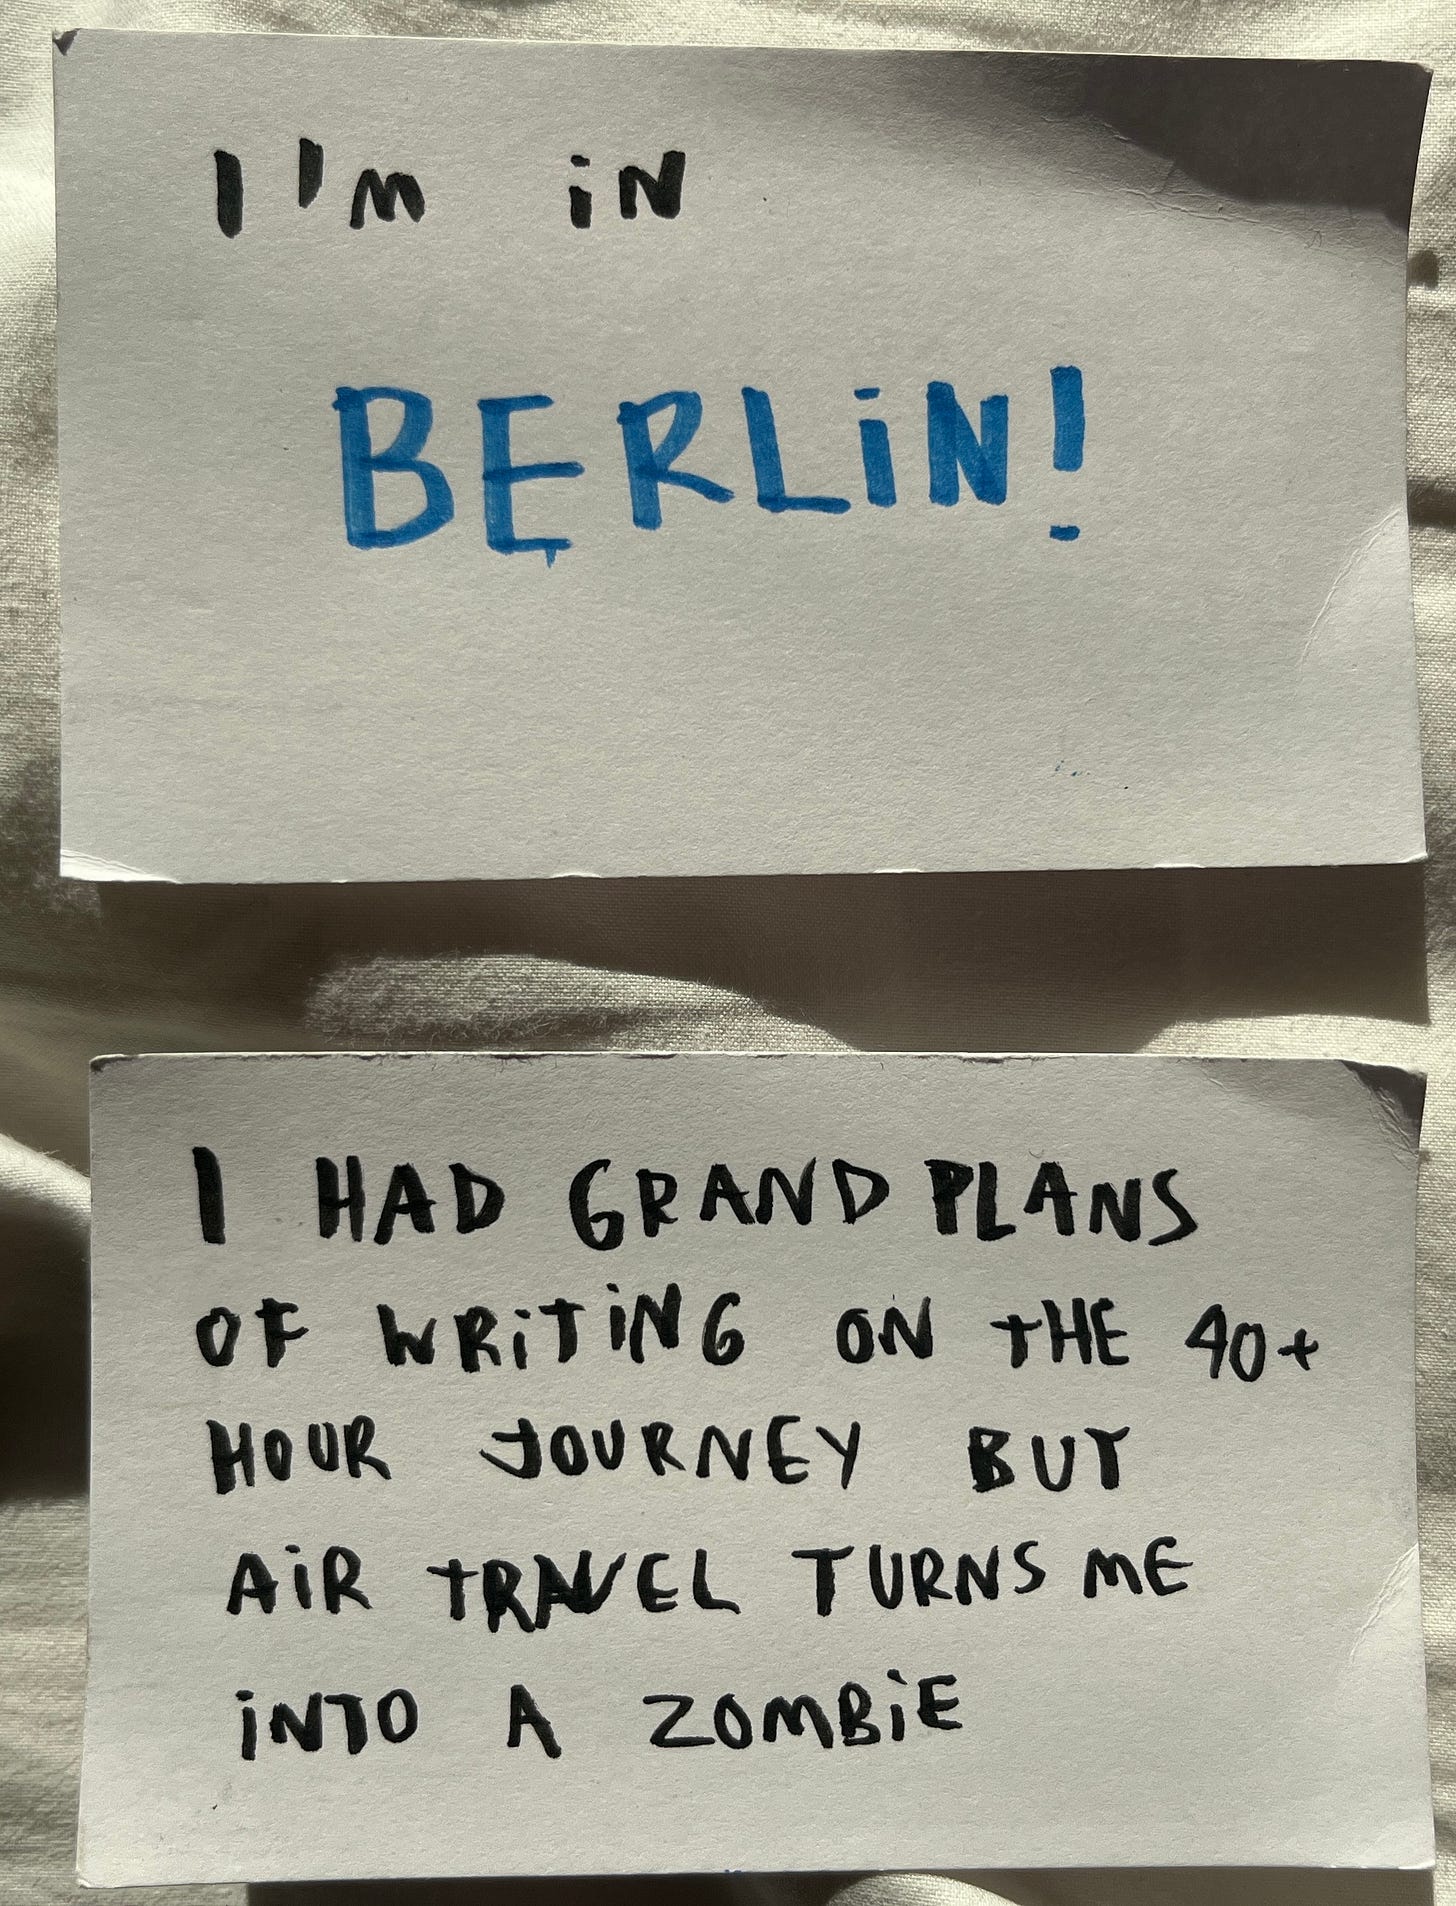 I'm iN
BERLiN!
I HAD GRAND PLANS
OF WRiTiNG ON THE 40+
HOUR JOURNEY BUT
AiR TRAVEL TURNS ME
iNTO A ZOMBiE